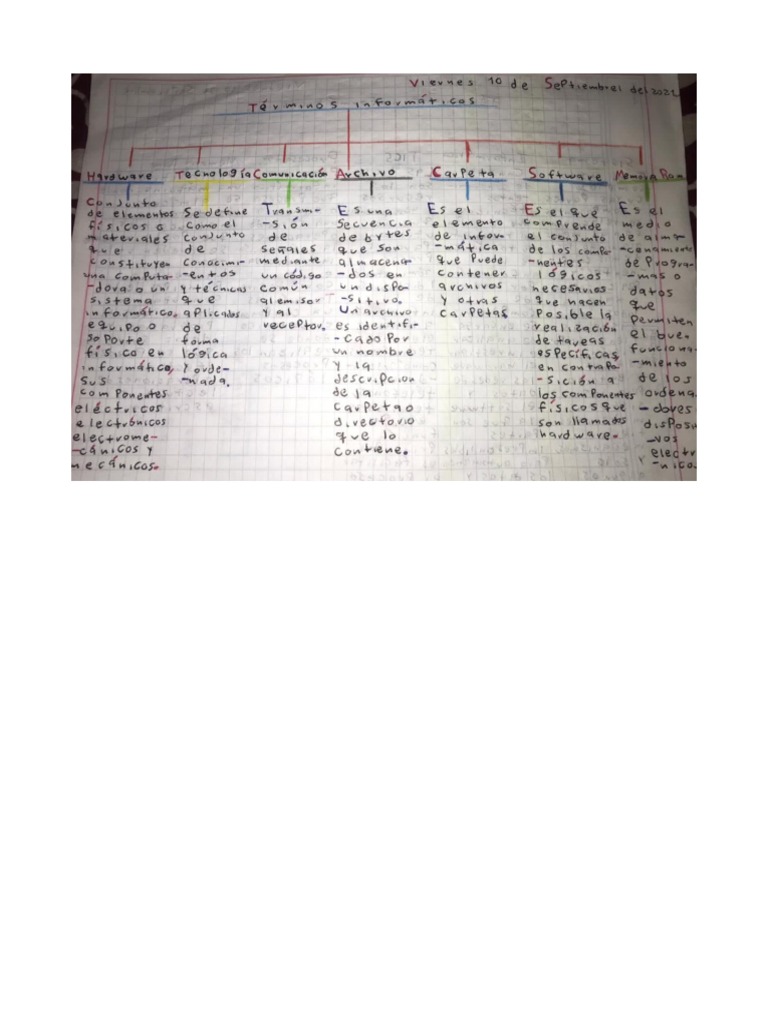 Viernes 10 de Septiembre del 2021
Términos informáticos
Hardware
Conjunto
de elementos
físicos o
materiales
que
constituyen
una computa-
-dora o un
sistema
informático.
equipo o
soporte
físico en
informática,
sus
componentes
eléctricos
electrónicos
electrome-
-cánicos y
mecánicos.
Tecnología
Se define
como el
conjunto
de
conocimi-
-entos
y técnicas
que
aplicados
de
forma
lógica
y orde-
-nada.
Comunicación
Transmi-
-sión
de
señales
mediante
un código
común
al emisor
y al
receptor.
Archivo
Es una
secuencia
de bytes
que son
almacena-
-dos en
un dispo-
-sitivo.
Un archivo
es identifi-
-cado por
un nombre
y la
descripcion
de la
carpeta o
directorio
que lo
contiene.
Carpeta
Es el
elemento
de infor-
-mática
que puede
contener
archivos
y otras
carpetas
Software
Es el que
comprende
el conjunto
de los compo-
-nentes
lógicos
necesarios
que hacen
posible la
realización
de tareas
especificas
en contrapo
-sición a
los componentes
físicos que
son llamados
hardware.
Memoria Ram
Es el
medio
de alma-
-cenamiento
de Progra-
-mas o
datos
que
permiten
el buen
funciona-
-miento
de los
ordena-
-dores
y disposi
-vos
electr
-nico.